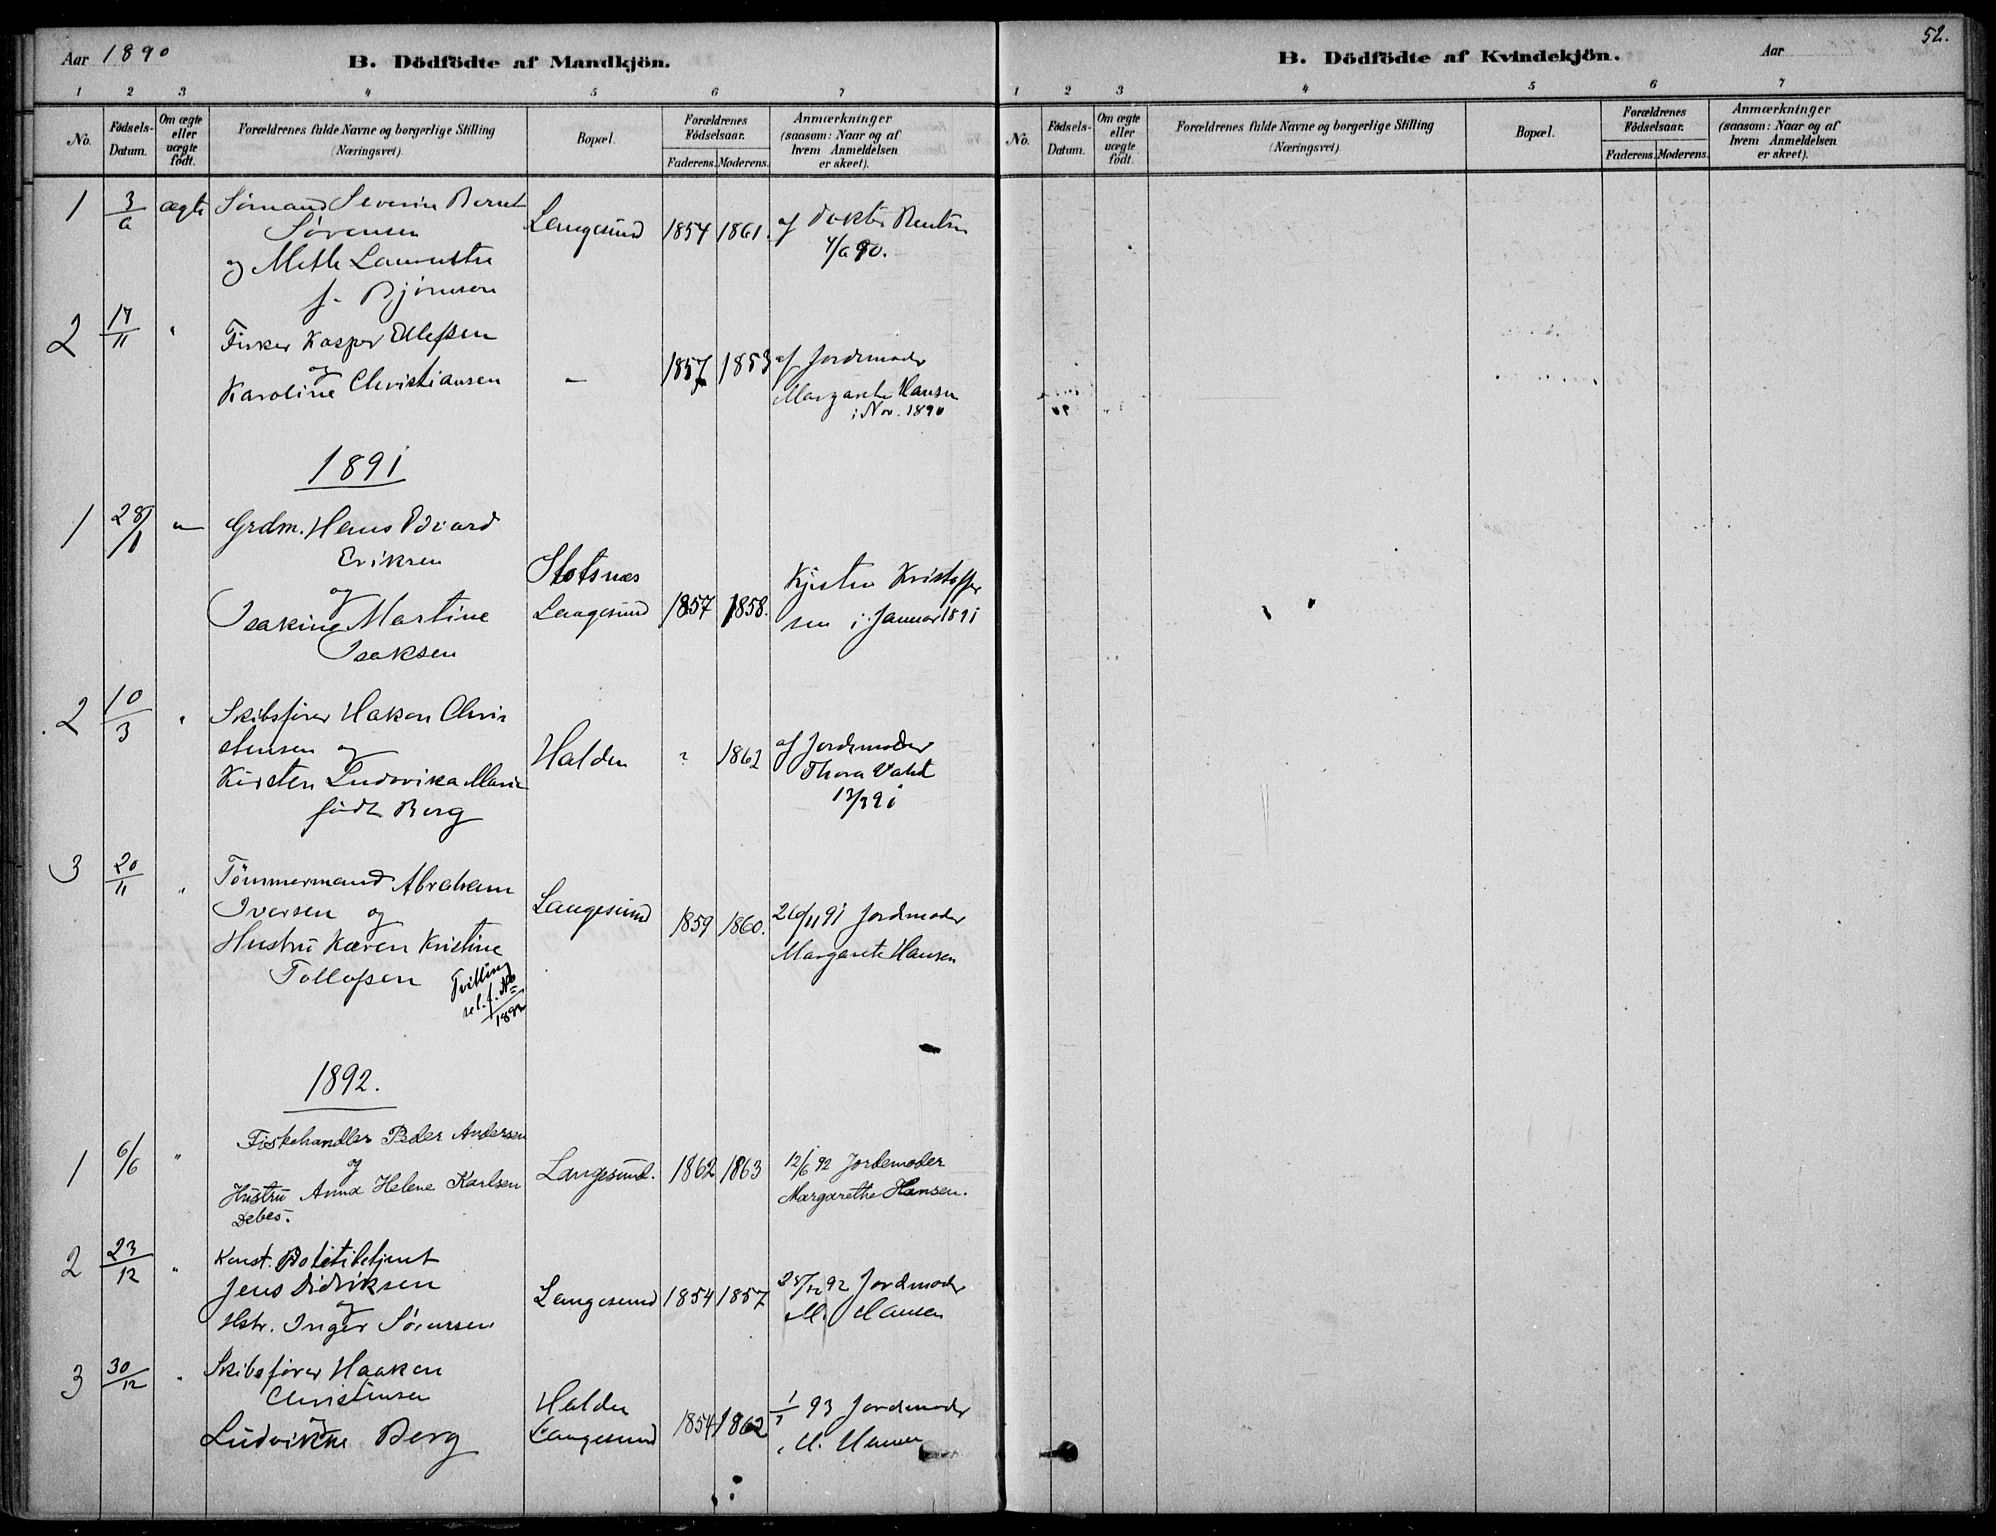 Aar 1890
B. Dödfödte af Mandkjön.
1 2 3 4 5 6 7
No.
Födsels-
Datum.
Om ægte
eller
uægte
födt.
Forældrenes fulde Navne og borgerlige Stilling
(Næringsvei).
Bopæl.
Forældrenes
Födselsaar.
Faderens. Moderens.
Anmærkninger
(saasom: Naar og af
hvem Anmeldelsen
er skeet).
1 3/6 ægte Sømand Severin Bernt
Sørensen
og Mette
f. Bjørnsen
Langesund 1854 1861. af Doktor
4/6 90.
2 17/11 " Fisker Kasper Ellefsen
og
Karoline Christiansen
— 1857 1853 af Jordemoder
Margarete Hansen
i Nov. 1890
1891
1 28/1 — Grdm. Hans Edvard
Eriksen
og
Isakine Martine
Isaksen
Stotsnæs
Langesund 1857 1858. Kirsten Kristoffer
sen i Januar 1891
2 10/3 " Skibsfører Hakon Chri
stensen og
Kirsten Ludovika Marie
født Berg
Halden ? 1862 af Jordemoder
Thora
13/3 91
3 20/11 " Tömmermand Abraham
Iversen og
Hustru Karen Kristine
Tollofsen
Tvilling
Langesund 1859 1860. 26/11 91 Jordemoder
Margarete Hansen
1892.
1 6/6 " Fiskehandler Peder Andersen
og
Hustru Anna Helene Karlsen
Debes.
Langesund. 1862 1863 12/6 92 Jordemoder
Margarethe Hansen.
2 23/12 " Konst. Politibetjent
Jens Didriksen
og
Hstr. Inger Sørensen
Langesund 1854 1857 28/12 92 Jordmoder
M. Hansen
3 30/12 " Skibsfører Haaken
Christensen
og
Ludvikke Berg
Halden
Langesund 1854 1862 1/1 93 Jordmoder
M. Hansen
52.
B. Dödfödte af Kvindekjön.
Aar
1 2 3 4 5 6 7
No.
Födsels-
Datum.
Om ægte
eller
uægte
födt.
Forældrenes fulde Navne og borgerlige Stilling
(Næringsvei).
Bopæl.
Forældrenes
Födselsaar.
Faderens. Moderens.
Anmærkninger
(saasom: Naar og af
hvem Anmeldelsen
er skeet).